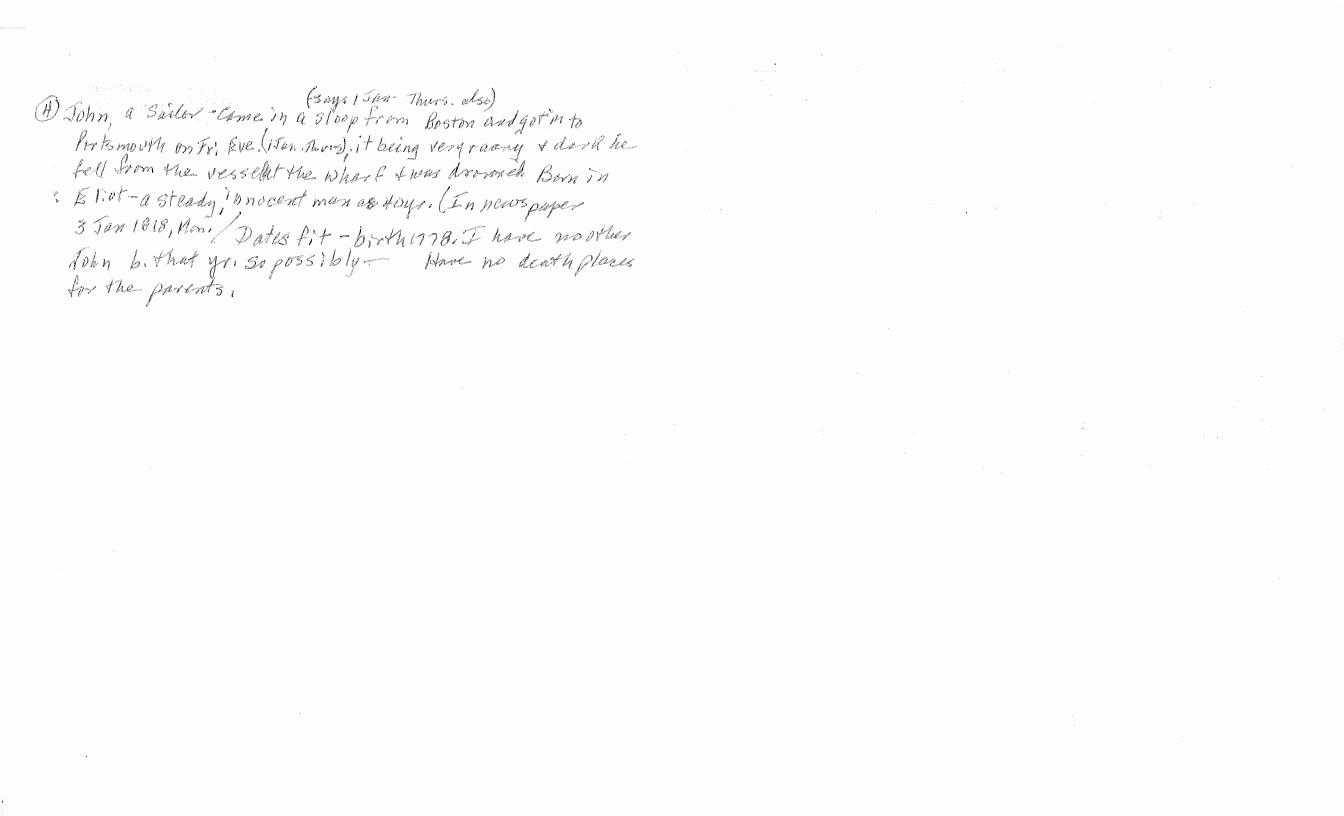 (says 1 Jan - Thurs. also)
(H) John, a Sailor - Came in a sloop from Boston and got in to
Portsmouth on Fri. Eve. (1 Jan. Thurs), it being very & dark he
fell from the vessel at the wharf & was drowned Born in
Eliot - a steady, innocent man ae 40 yr. (In newspaper
3 Jan 1818, Mon. / Dates fit - birth 1778. I have no other
John b. that yr. so possibly - Have no death places
for the parents.